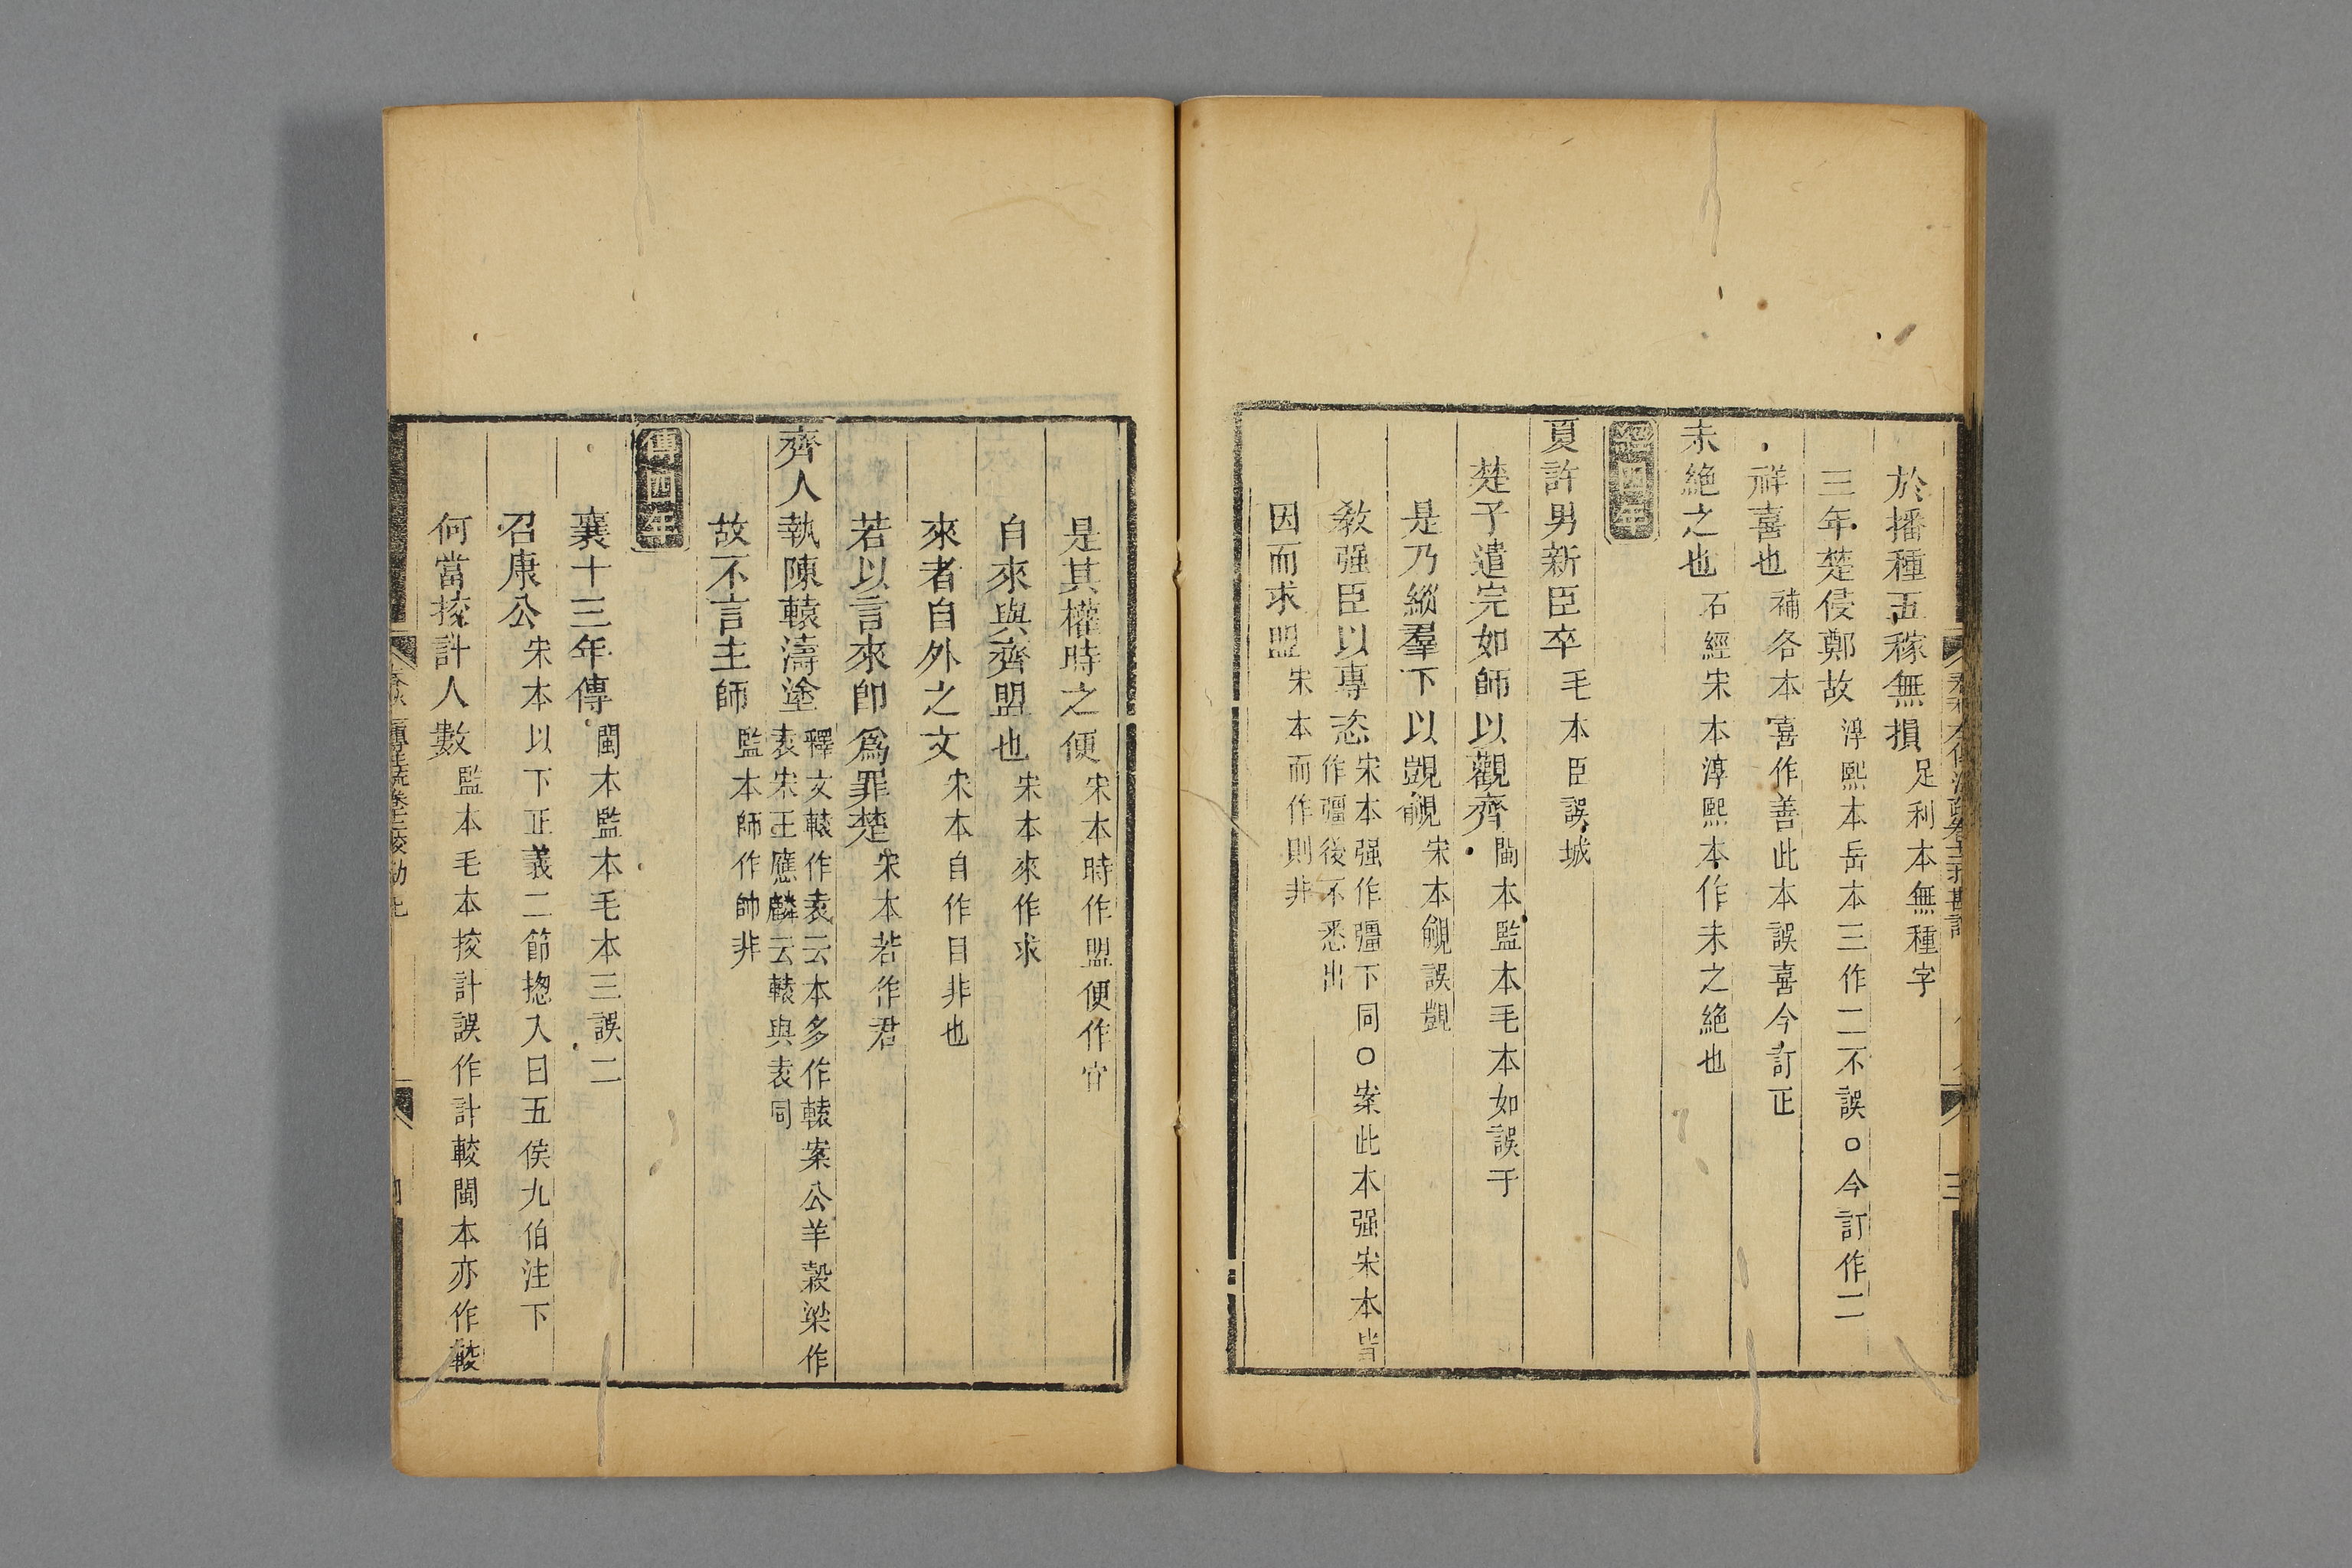 於播種五稼無損足利本無種字
三年楚侵鄭故淳熙本岳本三作二不誤○今訂作二
祥喜也補各本喜作善此本誤喜今訂正
未絕之也石經宋本淳熙本作未之絕也
經四年
夏許男新臣卒毛本臣誤城
楚子遣完如師以觀齊閩本監本毛本如誤于
是乃縱羣下以覬覦宋本覦誤覬
敎强臣以專恣宋本强作彊下同○案此本强宋本皆
作彊後不悉出
因而求盟宋本而作則非
是其權時之便宋本時作盟便作官
自來與齊盟也宋本來作求
來者自外之文宋本自作目非也
若以言來卽爲罪楚宋本若作君
齊人執陳轅濤塗釋文轅作袁云本多作轅案公羊穀梁作
袁宋王應麟云轅與袁同
故不言主師監本師作帥非
傳四年
襄十三年傳閩本監本毛本三誤二
召康公宋本以下正義二節揔入曰五侯九伯注下
何當挍計人數監本毛本挍計誤作計較閩本亦作較